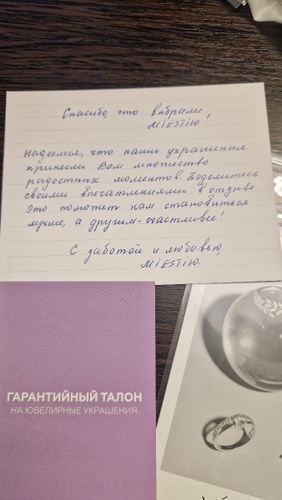 Спасибо, что выбрали
MIESTILO!
Надеемся, что наши украшения
принесут Вам множество
радостных моментов. Поделитесь
своими впечатлениями в отзыве.
Это поможет нам становиться
лучше, а другим - счастливее!
С заботой и любовью,
MIESTILO.
ГАРАНТИЙНЫЙ ТАЛОН
НА ЮВЕЛИРНЫЕ УКРАШЕНИЯ